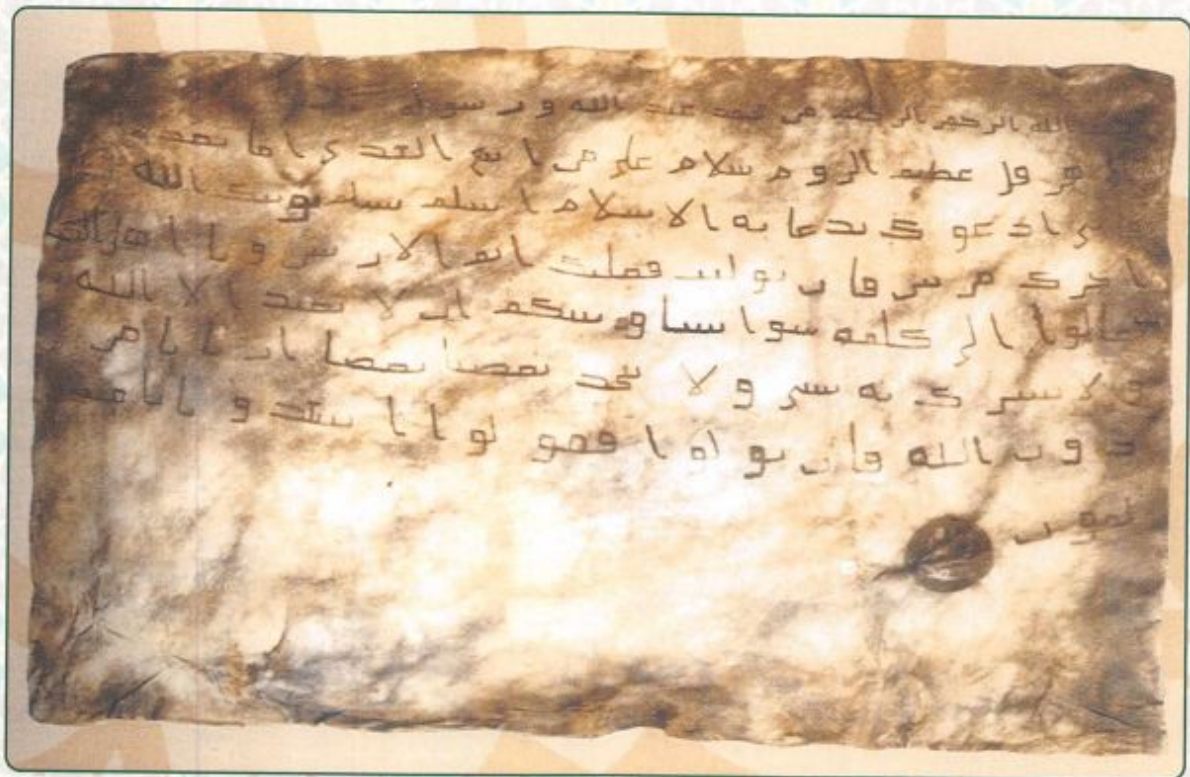 الله الرحمن الرحيم من محمد عبد الله ورسوله
هرقل عظيم الروم سلام على من اتبع الهدى اما بعد
ادعوك بدعاية الاسلام اسلم تسلم يوتك الله
اجرك مرتين فان توليت فعليك اثم الاريسين ويا اهل الكتا
تعالوا الى كلمة سوا بيننا وبينكم ان لا نعبد الا الله
ولا نشرك به شي ولا يتخذ بعضنا بعضا اربابا من
دون الله فان تولوا فقولوا اشهدوا بانا
لمون